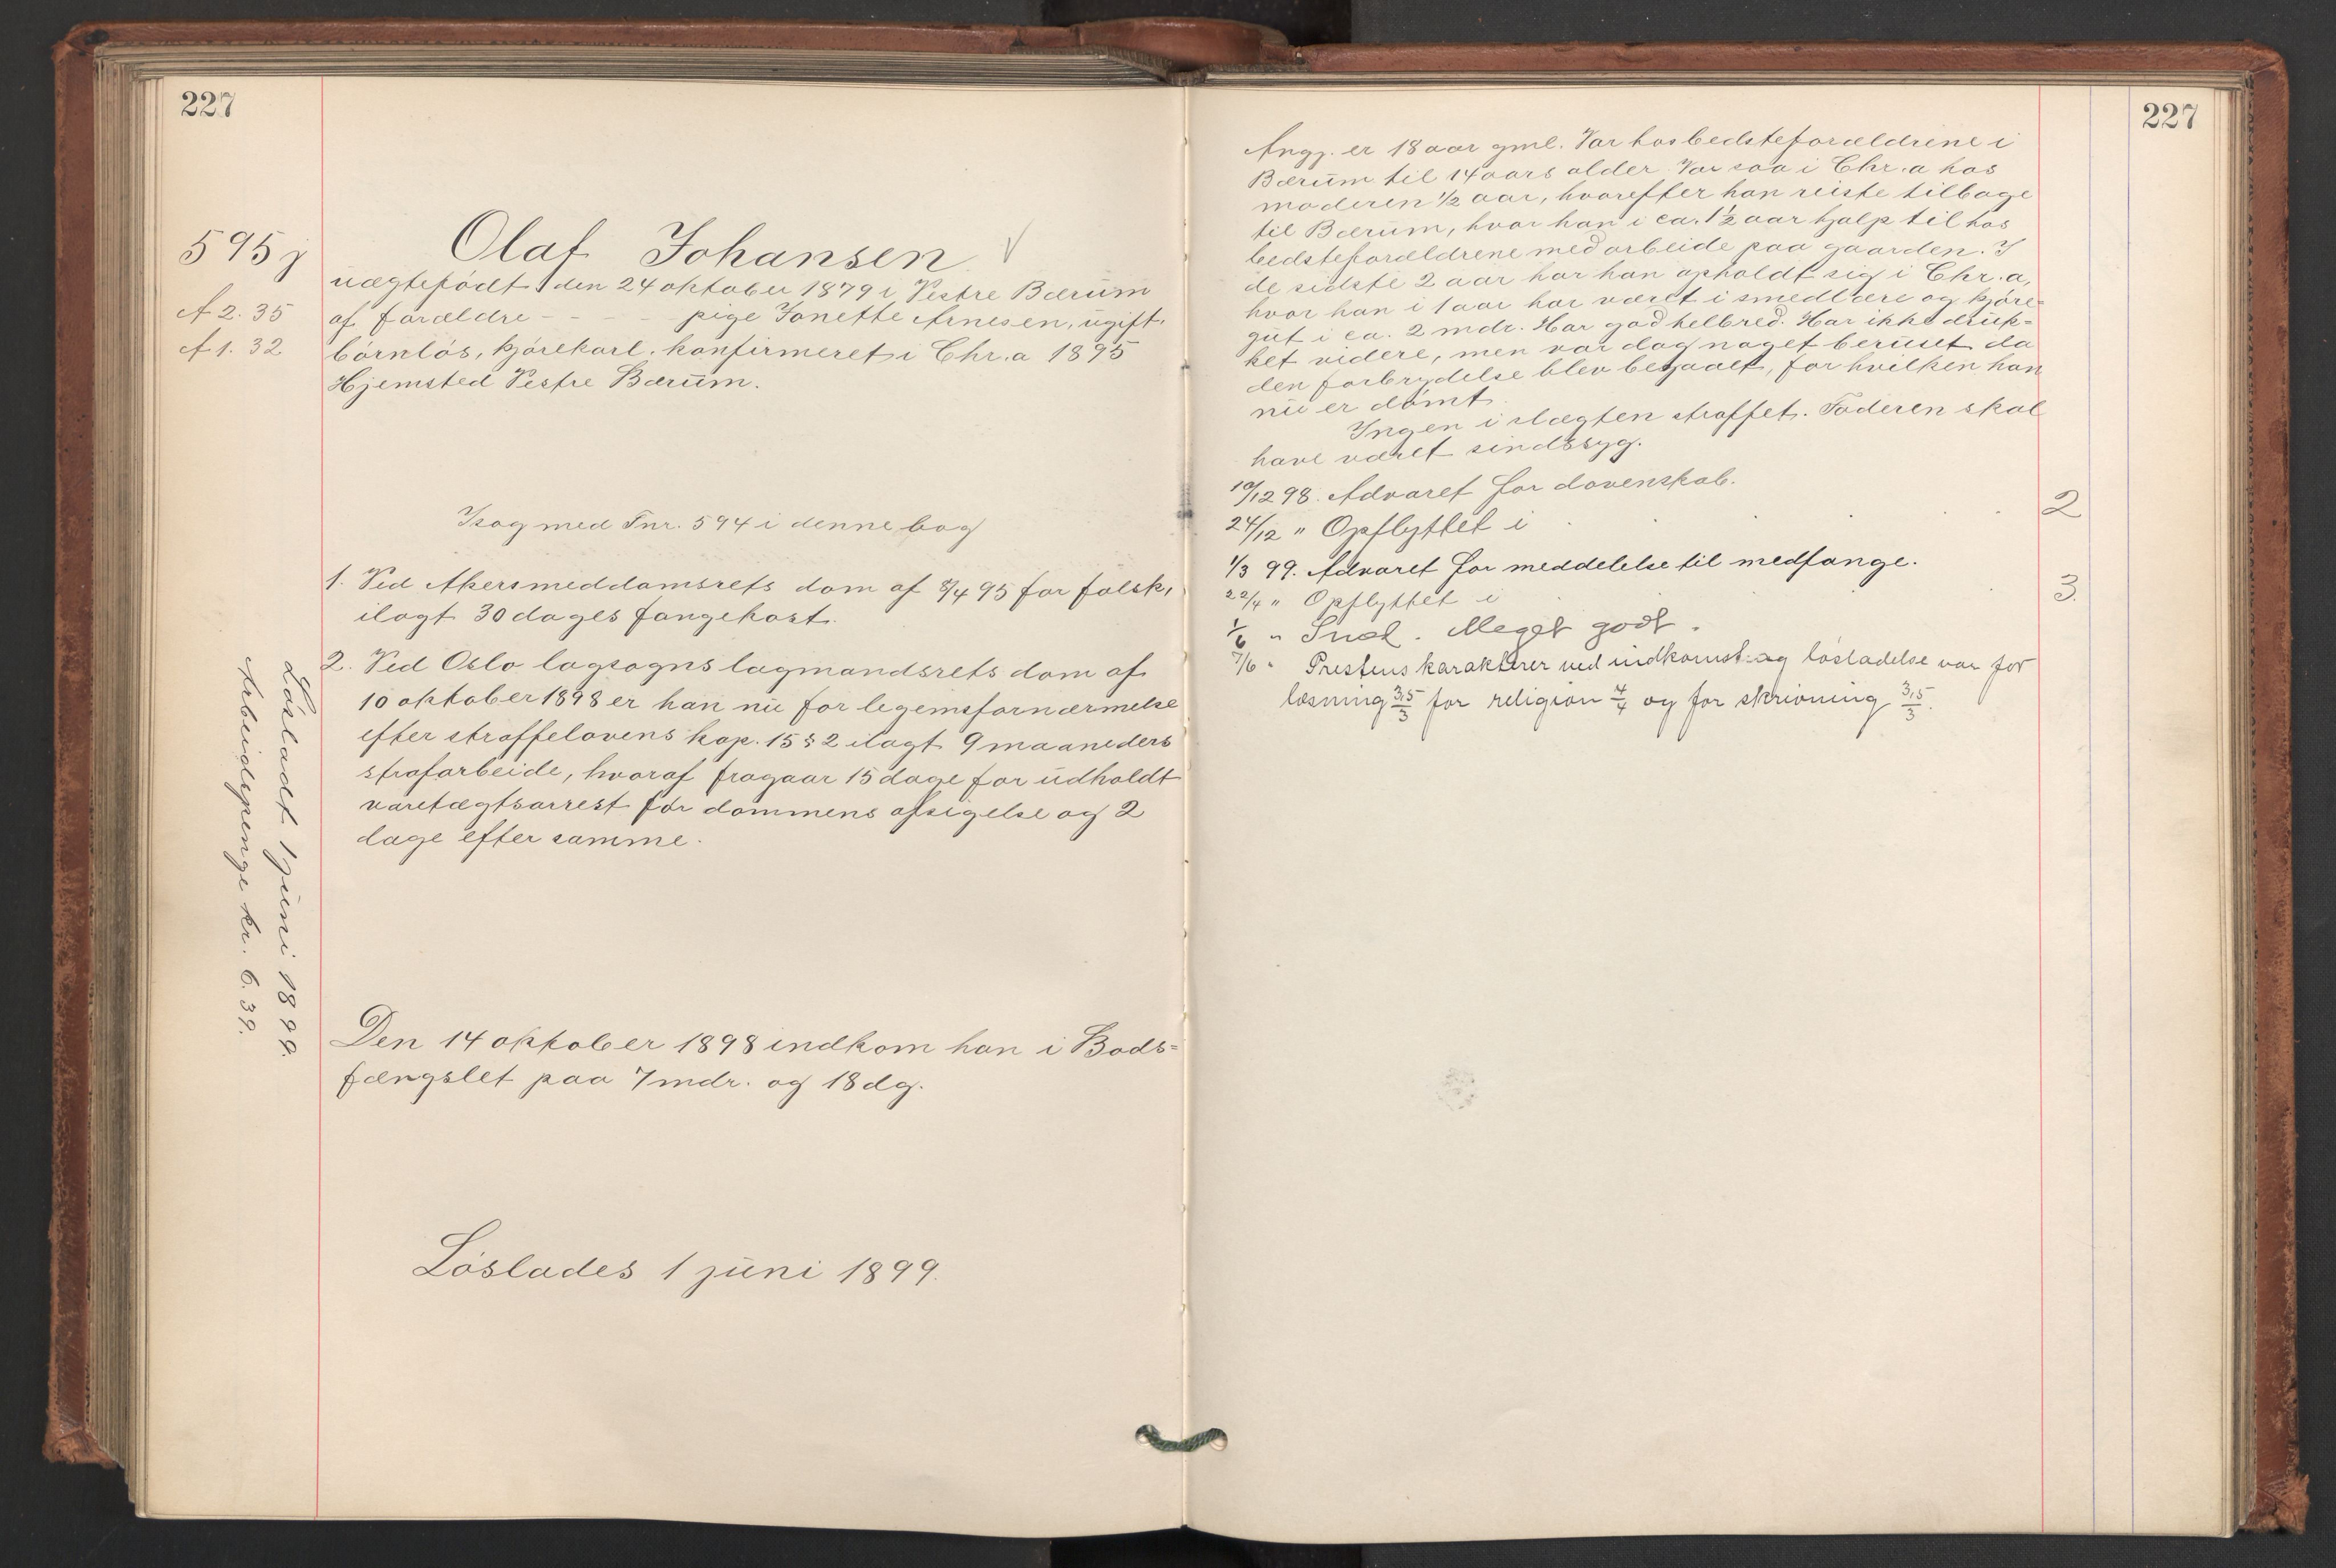 227
595 j
A 2. 35
A 1. 32
Olaf Johansen √
uægtefödt den 24 oktober 1879 i Vestre Bærŭm
af forældre - - - - pige Jonette Arnesen, ŭgift,
börnlös, kjörekarl, konfirmeret i Chr.a 1895
Hjemsted Vestre Bærŭm.
I sag med Fnr. 594 i denne bog
1. Ved Akersmeddomsrets dom af 8/4 95 for falsk,
ilagt 30 dages fangekost.
2. Ved Oslo lagsogns lagmandsrets dom af
10 oktober 1898 er han nŭ for legemsfornærmelse
efter straffelovens kap. 15 § 2 ilagt 9 maaneders
strafarbeide, hvoraf fragaar 15 dage for ŭdholdt
varetægtsarrest för dommens afsigelse og 2
dage efter samme.
Den 14 oktober 1898 indkom han i Bods=
fængslet paa 7 mdr. og 18 dg.
Löslades 1 jŭni 1899.
Lösladt 1 jŭni 1899.
Arbeidspenge kr. 6.39.
227
Angj. er 18 aar gml. Var hos bedsteforældrene i
Bærŭm til 14 aars alder. Var saa i Chr.a hos
moderen 1/2 aar, hvorefter han reiste tilbage
til Bærŭm, hvor han i ca. 1 1/2 aar hjalp til hos
bedsteforældrene med arbeide paa gaarden. I
de sidste 2 aar har han opholdt sig i Chr.a,
hvor han i 1 aar har været i smedlære og kjöre=
gŭt i ca. 2 mdr. Har god helbred. Har ikke drŭk=
ket videre, men var dog noget berŭset da
den forbrydelse blev begaaet, for hvilken han
nŭ er dömt.
Ingen i slægten straffet. Faderen skal
have været sindssyg.
10/12 98. Advaret for dovenskab.
24/12 " Opflyttet i 2
1/3 99. Advaret for meddelelse til medfange.
22/4 " Opflyttet i 3.
1/6 " Meget godt.
7/6 " Prestens karakterer ved indkomst og lösladelse var for
læsning 3,5/3 for religion 4/4 og for skrivning 3,5/3.